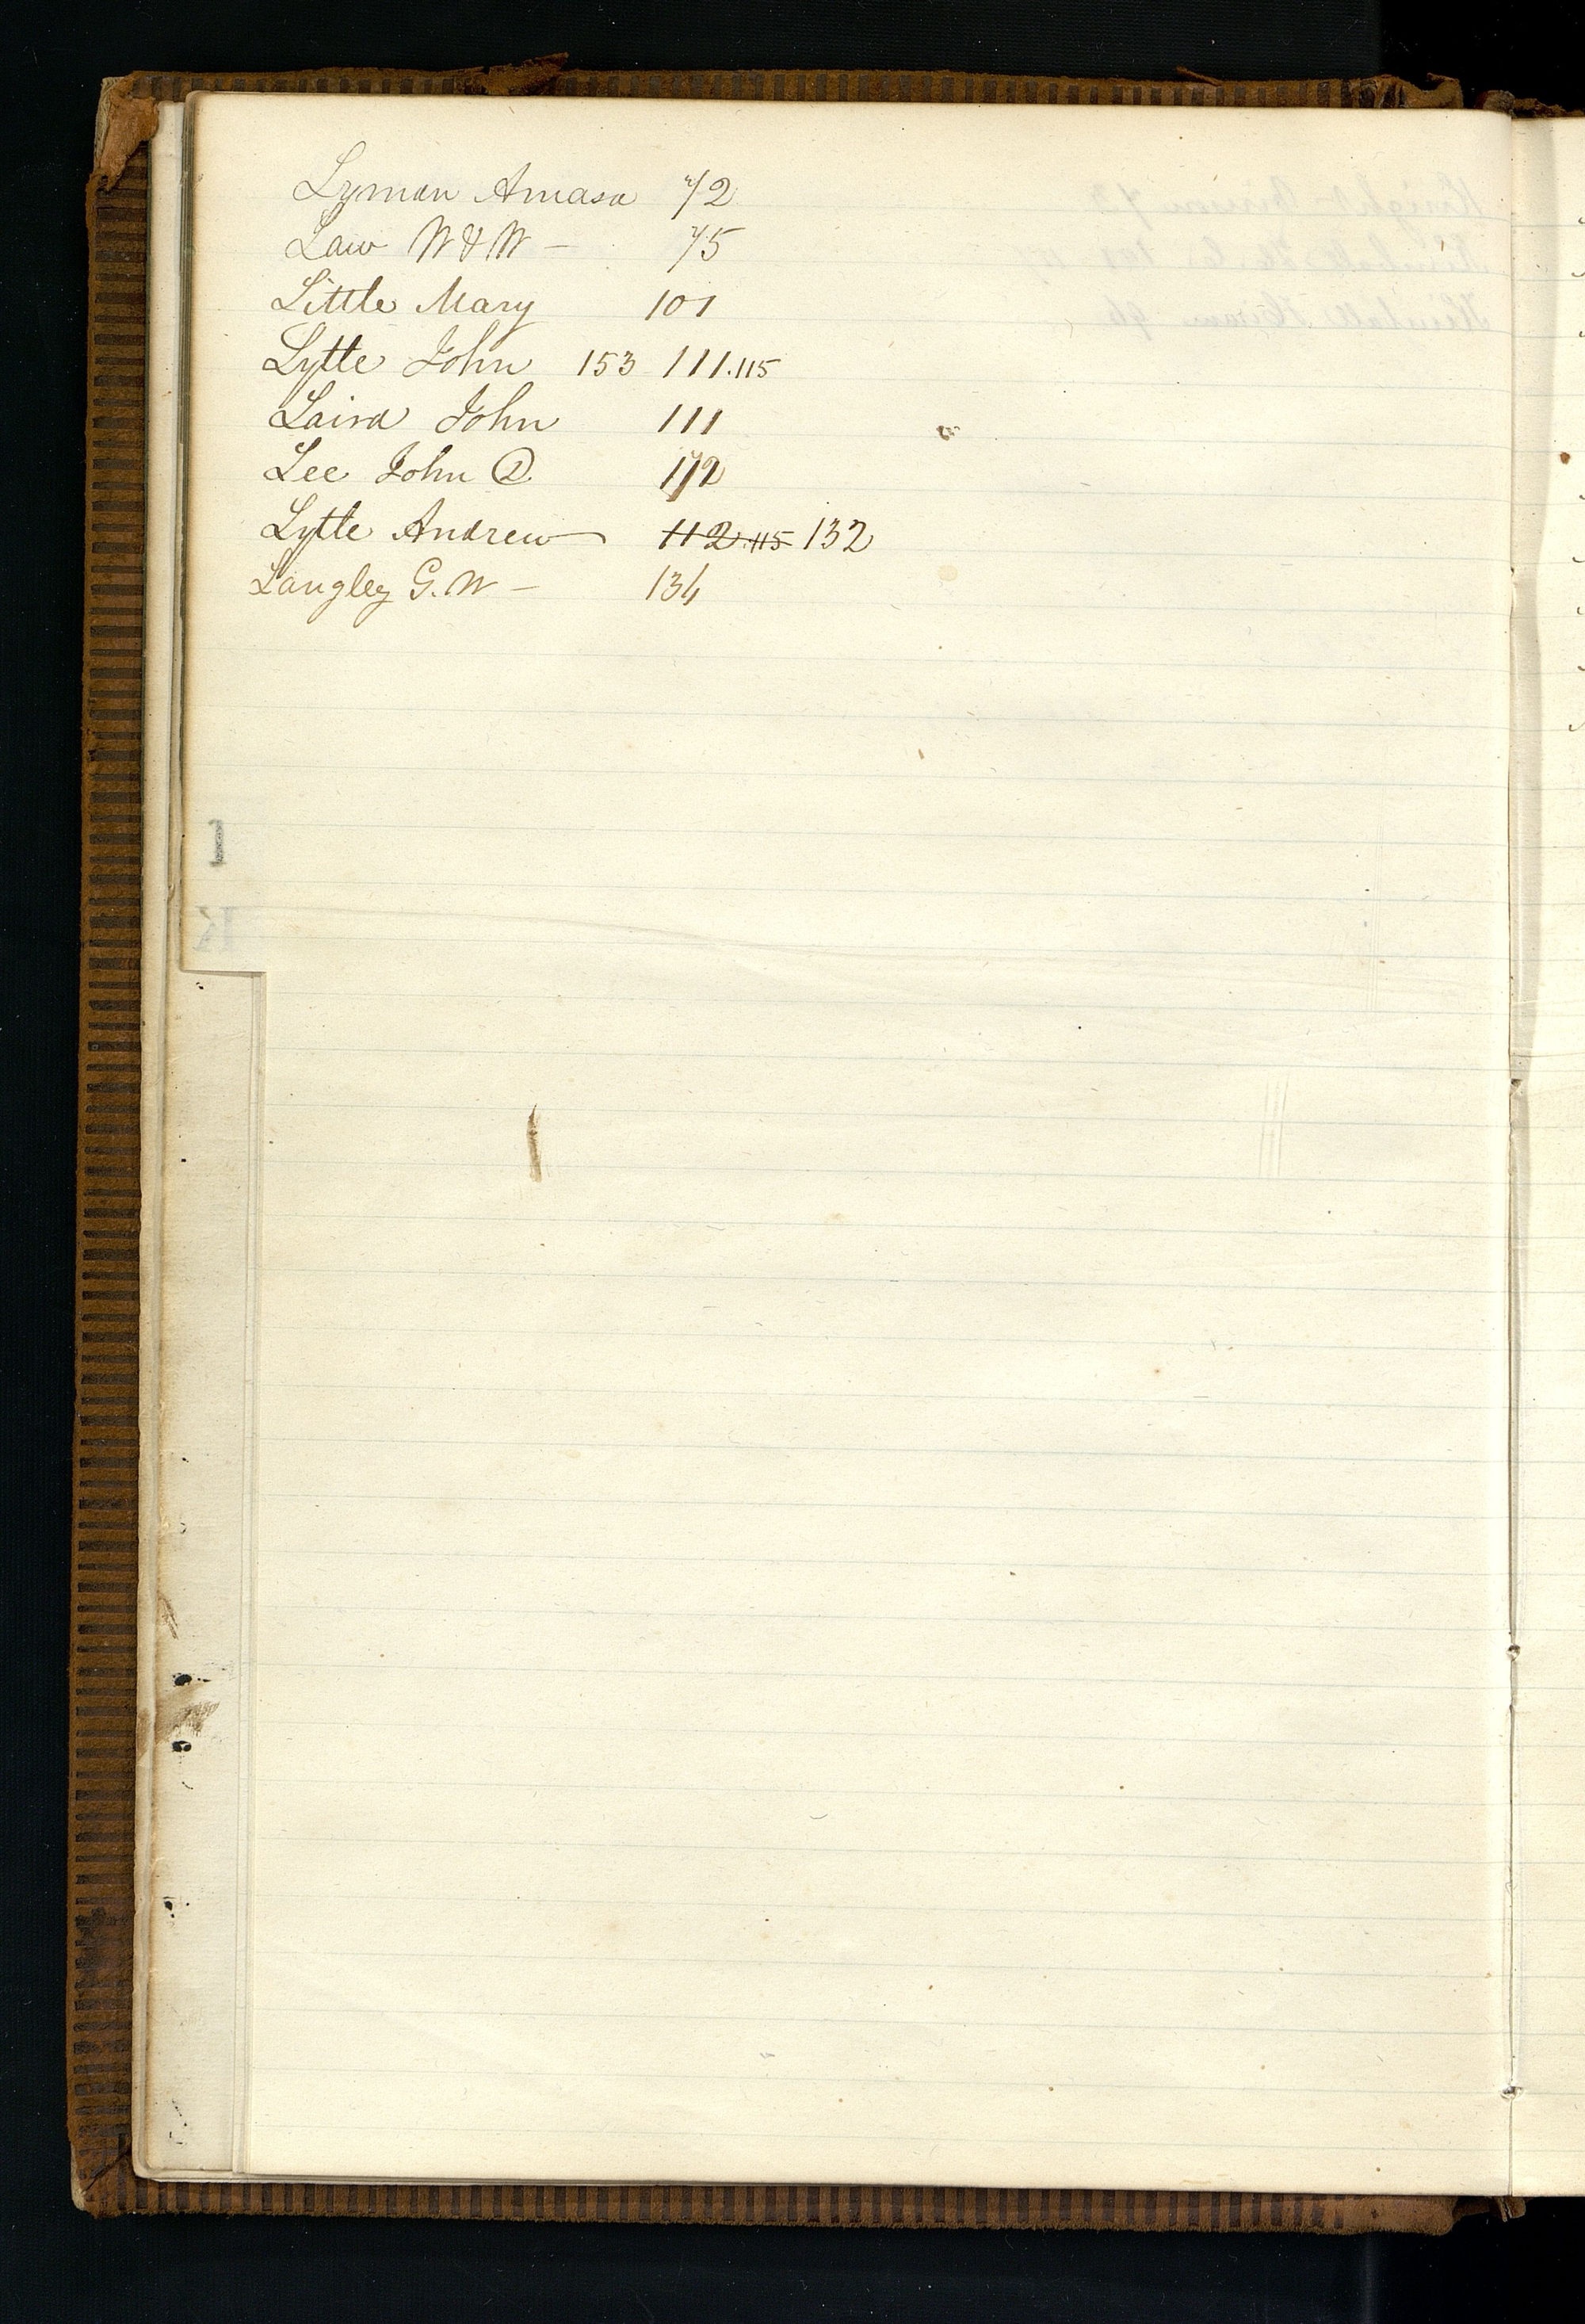 Lyman Amasa 72
Law W & W — 75
Little Mary 101
Lytle John 153 111.115
Laird John 111
Lee John D 172
Lytle Andrew 112.115 132
Langley G. W — 134